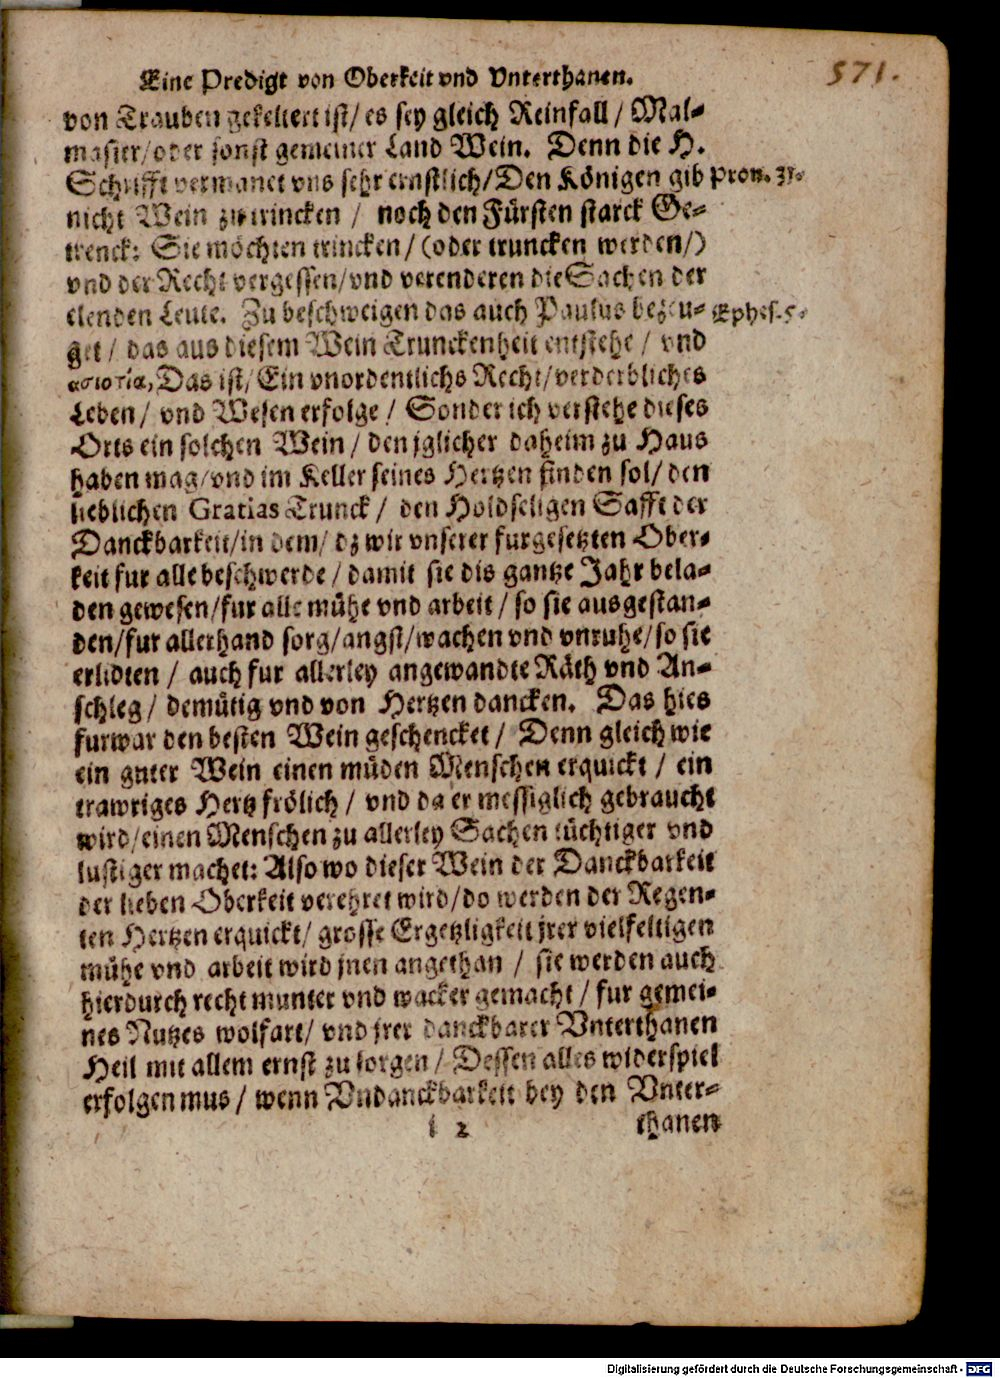 Eine Predigt von Oberkeit vnd Vnterthanen.
571.
von Trauben gekeltert ist/ es sey gleich Reinfall / Mal-
masier/oder sonst gemeiner Land Wein. Denn die H.
Schrifft vermanet vns sehr ernstlich/Den Königen gib
Prou. 31.
nicht Wein zu trincken / noch den Fürsten starck Ge-
trenck: Sie möchten trincken/(oder truncken werden/)
vnd der Recht vergessen/vnd verenderen die Sachen der
elenden Leute. Zu beschweigen das auch Paulus bezeu-
Ephes. 5.
get / das aus diesem Wein Trunckenheit entstehe / vnd
ασωτία, Das ist/Ein vnordentlichs Recht/verderbliches
Leben/ vnd Wesen erfolge / Sonder ich verstehe dieses
Orts ein solchen Wein/ den jglicher daheim zu Haus
haben mag/vnd im Keller seines Hertzen finden sol/ den
lieblichen Gratias Trunck / den Holdseligen Safft der
Danckbarkeit/in dem/ dz wir vnserer furgesetzten Ober-
keit fur alle beschwerde / damit sie dis gantze Jahr bela-
den gewesen/fur alle mühe vnd arbeit / so sie ausgestan-
den/fur allerhand sorg/angst/wachen vnd vnruhe/so sie
erlidten / auch fur allerley angewandte Räth vnd An-
schleg/ demütig vnd von Hertzen dancken. Das hies
furwar den besten Wein geschencket/ Denn gleich wie
ein guter Wein einen müden Menschen erquickt / ein
trawriges Hertz frölich / vnd da er messiglich gebraucht
wird/einen Menschen zu allerley Sachen tüchtiger vnd
lustiger machet: Also wo dieser Wein der Danckbarkeit
der lieben Oberkeit verehret wird/do werden der Regen-
ten Hertzen erquickt/ grosse Ergetzligkeit jrer vielfeltigen
mühe vnd arbeit wird jnen angethan / sie werden auch
hierdurch recht munter vnd wacker gemacht/ fur gemei-
nes Nutzes wolfart/ vnd jrer danckbarer Vnterthanen
Heil mit allem ernst zu sorgen / Dessen alles widerspiel
erfolgen mus / wenn Vndanckbarkeit bey den Vnter-
i 2
thanen
Digitalisierung gefördert durch die Deutsche Forschungsgemeinschaft - DFG